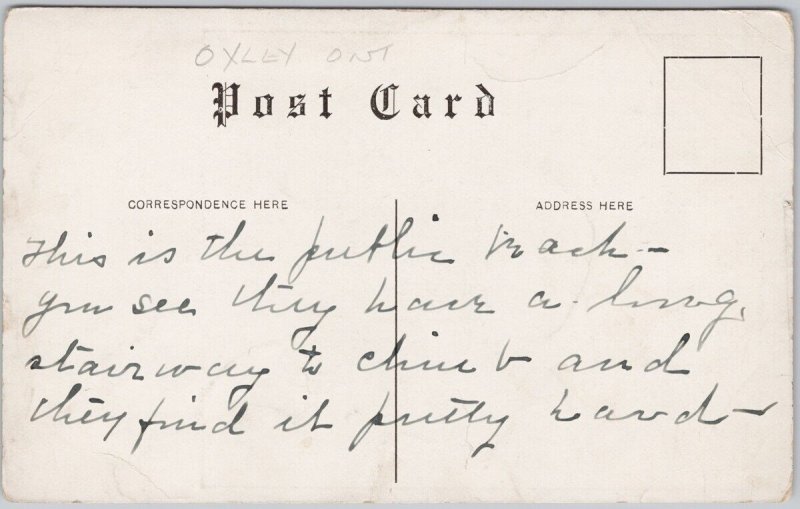 OXLEY ONT
Post Card
CORRESPONDENCE HERE
ADDRESS HERE
This is the public beach –
you see they have a long,
stairway to climb and
they find it pretty hard –